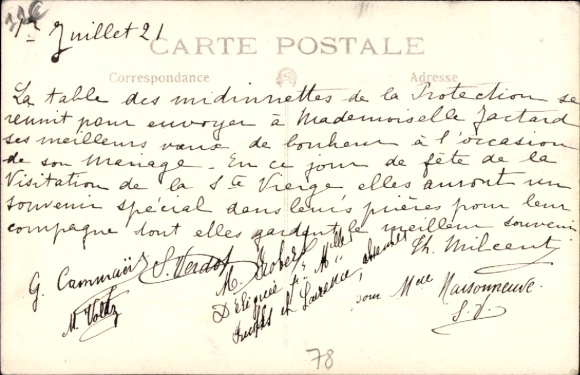 1er Juillet 21
CARTE POSTALE
Correspondance Adresse
La table des midinnettes de la Protection se
réunit pour envoyer à Mademoiselle Jactard
ses meilleurs vœux de bonheur à l'occasion
de son mariage. En ce jour de fête de la
Visitation de la Ste Vierge elles auront un
souvenir spécial dans leurs prières pour leur
compagne dont elles gardent le meilleur souvenir
G. Cammaïr S. Verdot Th. Milcent
M. Voltz
M.
Déléguée pr Melles
et Laurence, absentes
pour Melle Maisonneuve.
S. V.
78